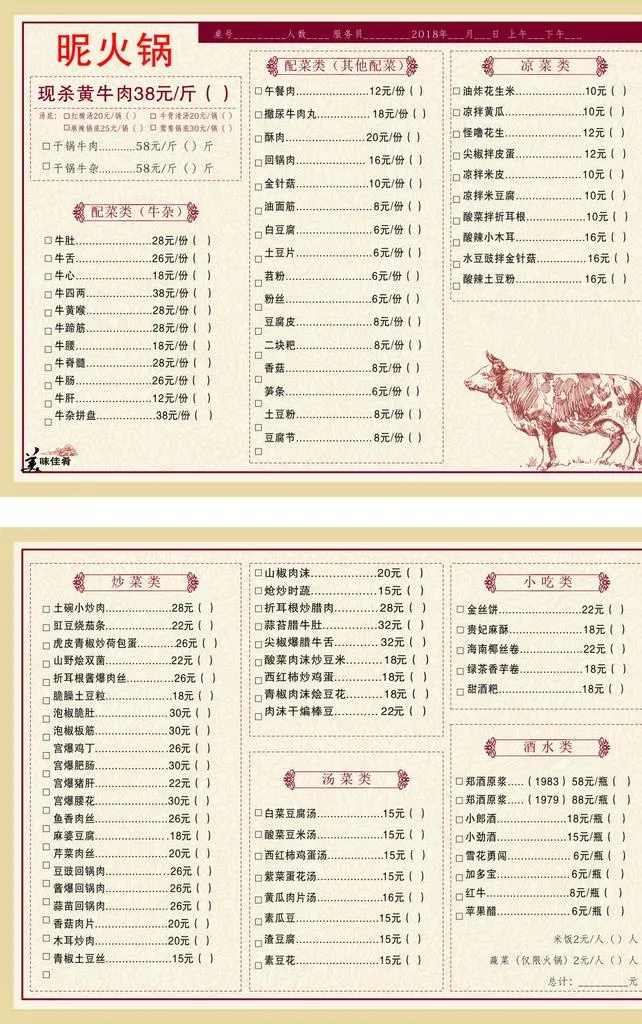 昵火锅
桌号_________人数____ 服务员________2018年___月___日 上午___下午___
现杀黄牛肉38元/斤（ ）
汤底：□红酸汤20元/锅（ ） □牛骨清汤20元/锅（ ）
□麻辣锅底25元/锅（ ） □鸳鸯锅底30元/锅（ ）
□干锅牛肉.........58元/斤（）斤
□干锅牛杂.........58元/斤（）斤
配菜类（牛杂）
□牛肚....................28元/份（ ）
□牛舌....................26元/份（ ）
□牛心....................18元/份（ ）
□牛四两................38元/份（ ）
□牛黄喉................28元/份（ ）
□牛蹄筋................28元/份（ ）
□牛腰....................18元/份（ ）
□牛脊髓................28元/份（ ）
□牛肠....................26元/份（ ）
□牛肝....................12元/份（ ）
□牛杂拼盘..............38元/份（ ）
美味佳肴
配菜类（其他配菜）
□午餐肉....................12元/份（ ）
□撒尿牛肉丸..............18元/份（ ）
□酥肉....................20元/份（ ）
□回锅肉....................16元/份（ ）
□金针菇....................10元/份（ ）
□油面筋....................8元/份（ ）
□白豆腐....................6元/份（ ）
□土豆片....................6元/份（ ）
□苕粉....................6元/份（ ）
□粉丝....................6元/份（ ）
□豆腐皮....................8元/份（ ）
□二块粑....................8元/份（ ）
□香菇....................8元/份（ ）
□笋条....................6元/份（ ）
□土豆粉....................8元/份（ ）
□豆腐节....................8元/份（ ）
凉菜类
□油炸花生米................10元（ ）
□凉拌黄瓜..................10元（ ）
□怪噜花生..................12元（ ）
□尖椒拌皮蛋................12元（ ）
□凉拌米皮..................10元（ ）
□凉拌米豆腐................10元（ ）
□酸菜拌折耳根..............10元（ ）
□酸辣小木耳................16元（ ）
□水豆豉拌金针菇............16元（ ）
□酸辣土豆粉................16元（ ）
炒菜类
□土碗小炒肉....................28元（ ）
□豇豆烧茄条....................22元（ ）
□虎皮青椒炒荷包蛋...........26元（ ）
□山野烩双菌....................22元（ ）
□折耳根酱爆肉丝..............26元（ ）
□脆臊土豆粒....................18元（ ）
□泡椒脆肚......................30元（ ）
□泡椒板筋......................30元（ ）
□宫爆鸡丁......................26元（ ）
□宫爆肥肠......................30元（ ）
□宫爆猪肝......................22元（ ）
□宫爆腰花......................30元（ ）
□鱼香肉丝......................26元（ ）
□麻婆豆腐......................18元（ ）
□芹菜肉丝......................20元（ ）
□豆豉回锅肉....................26元（ ）
□酱爆回锅肉....................26元（ ）
□蒜苗回锅肉....................26元（ ）
□香菇肉片......................20元（ ）
□木耳炒肉......................20元（ ）
□青椒土豆丝....................15元（ ）
□山椒肉沫....................20元（ ）
□炝炒时蔬....................15元（ ）
□折耳根炒腊肉..............28元（ ）
□蒜苔腊牛肚................32元（ ）
□尖椒爆腊牛舌..............32元（ ）
□酸菜肉沫炒豆米...........18元（ ）
□西红柿炒鸡蛋..............18元（ ）
□青椒肉沫烩豆花...........18元（ ）
□肉沫干煸棒豆..............22元（ ）
汤菜类
□白菜豆腐汤....................15元（ ）
□酸菜豆米汤....................15元（ ）
□西红柿鸡蛋汤.................15元（ ）
□紫菜蛋花汤....................15元（ ）
□黄瓜肉片汤....................16元（ ）
□素瓜豆........................15元（ ）
□渣豆腐........................15元（ ）
□素豆花........................15元（ ）
小吃类
□金丝饼........................22元（ ）
□贵妃麻酥......................18元（ ）
□海南椰丝卷....................22元（ ）
□绿茶香芋卷....................18元（ ）
□甜酒粑........................18元（ ）
酒水类
□郑酒原浆.....（1983）58元/瓶（ ）
□郑酒原浆.....（1979）88元/瓶（ ）
□小郎酒.....................18元/瓶（ ）
□小劲酒.....................15元/瓶（ ）
□雪花勇闯....................6元/瓶（ ）
□加多宝.....................6元/瓶（ ）
□红牛.......................8元/瓶（ ）
□苹果醋.....................6元/瓶（ ）
米饭2元/人（）人
蔬菜（仅限火锅）2元/人（）人
总计：_________元